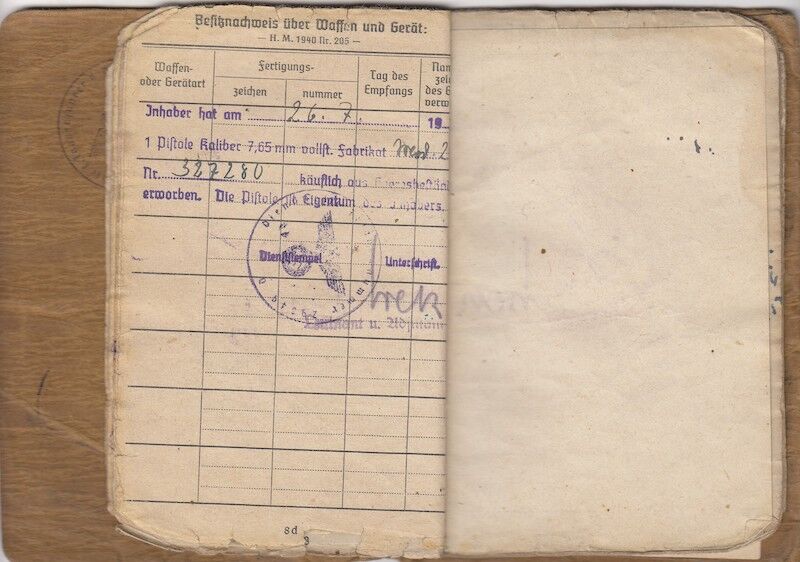 Besitznachweis über Waffen und Gerät:
— H. M. 1940 Nr. 205 —
Waffen-
oder Gerätart
Fertigungs-
zeichen
nummer
Tag des
Empfangs
Inhaber hat am 26. 7. 19
1 Pistole Kaliber 7,65 mm vollst. Fabrikat
Nr. 327280 käuflich aus
erworben. Die Pistole ist Eigentum des Inhabers.
Dienststempel
Unterschrift.
Leutnant u.
sd
3